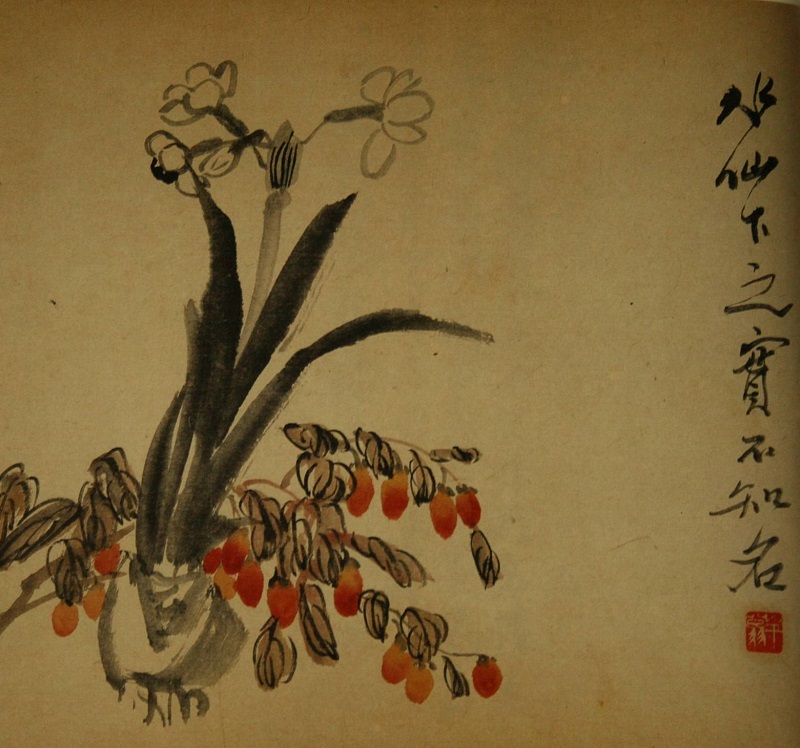 水仙下之實不知名